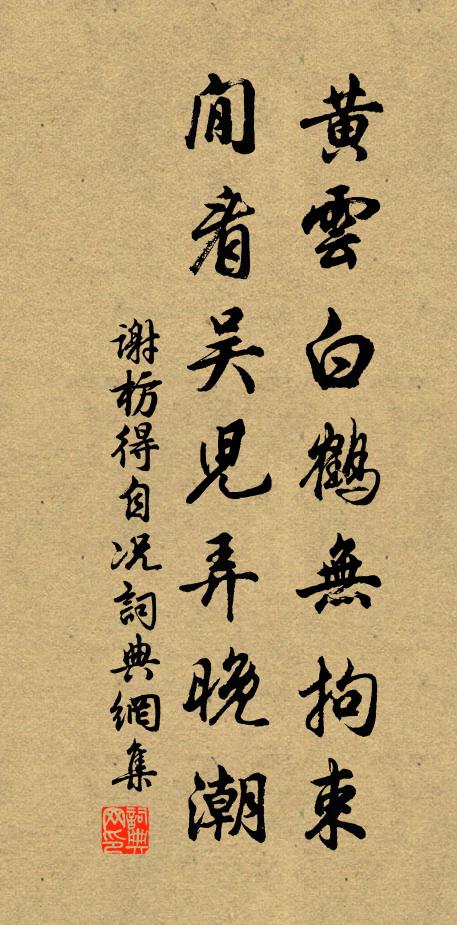 黄雲白鶴無拘束
閒看吴兒弄晚潮
謝枋得自况詞典網集
詞典网印